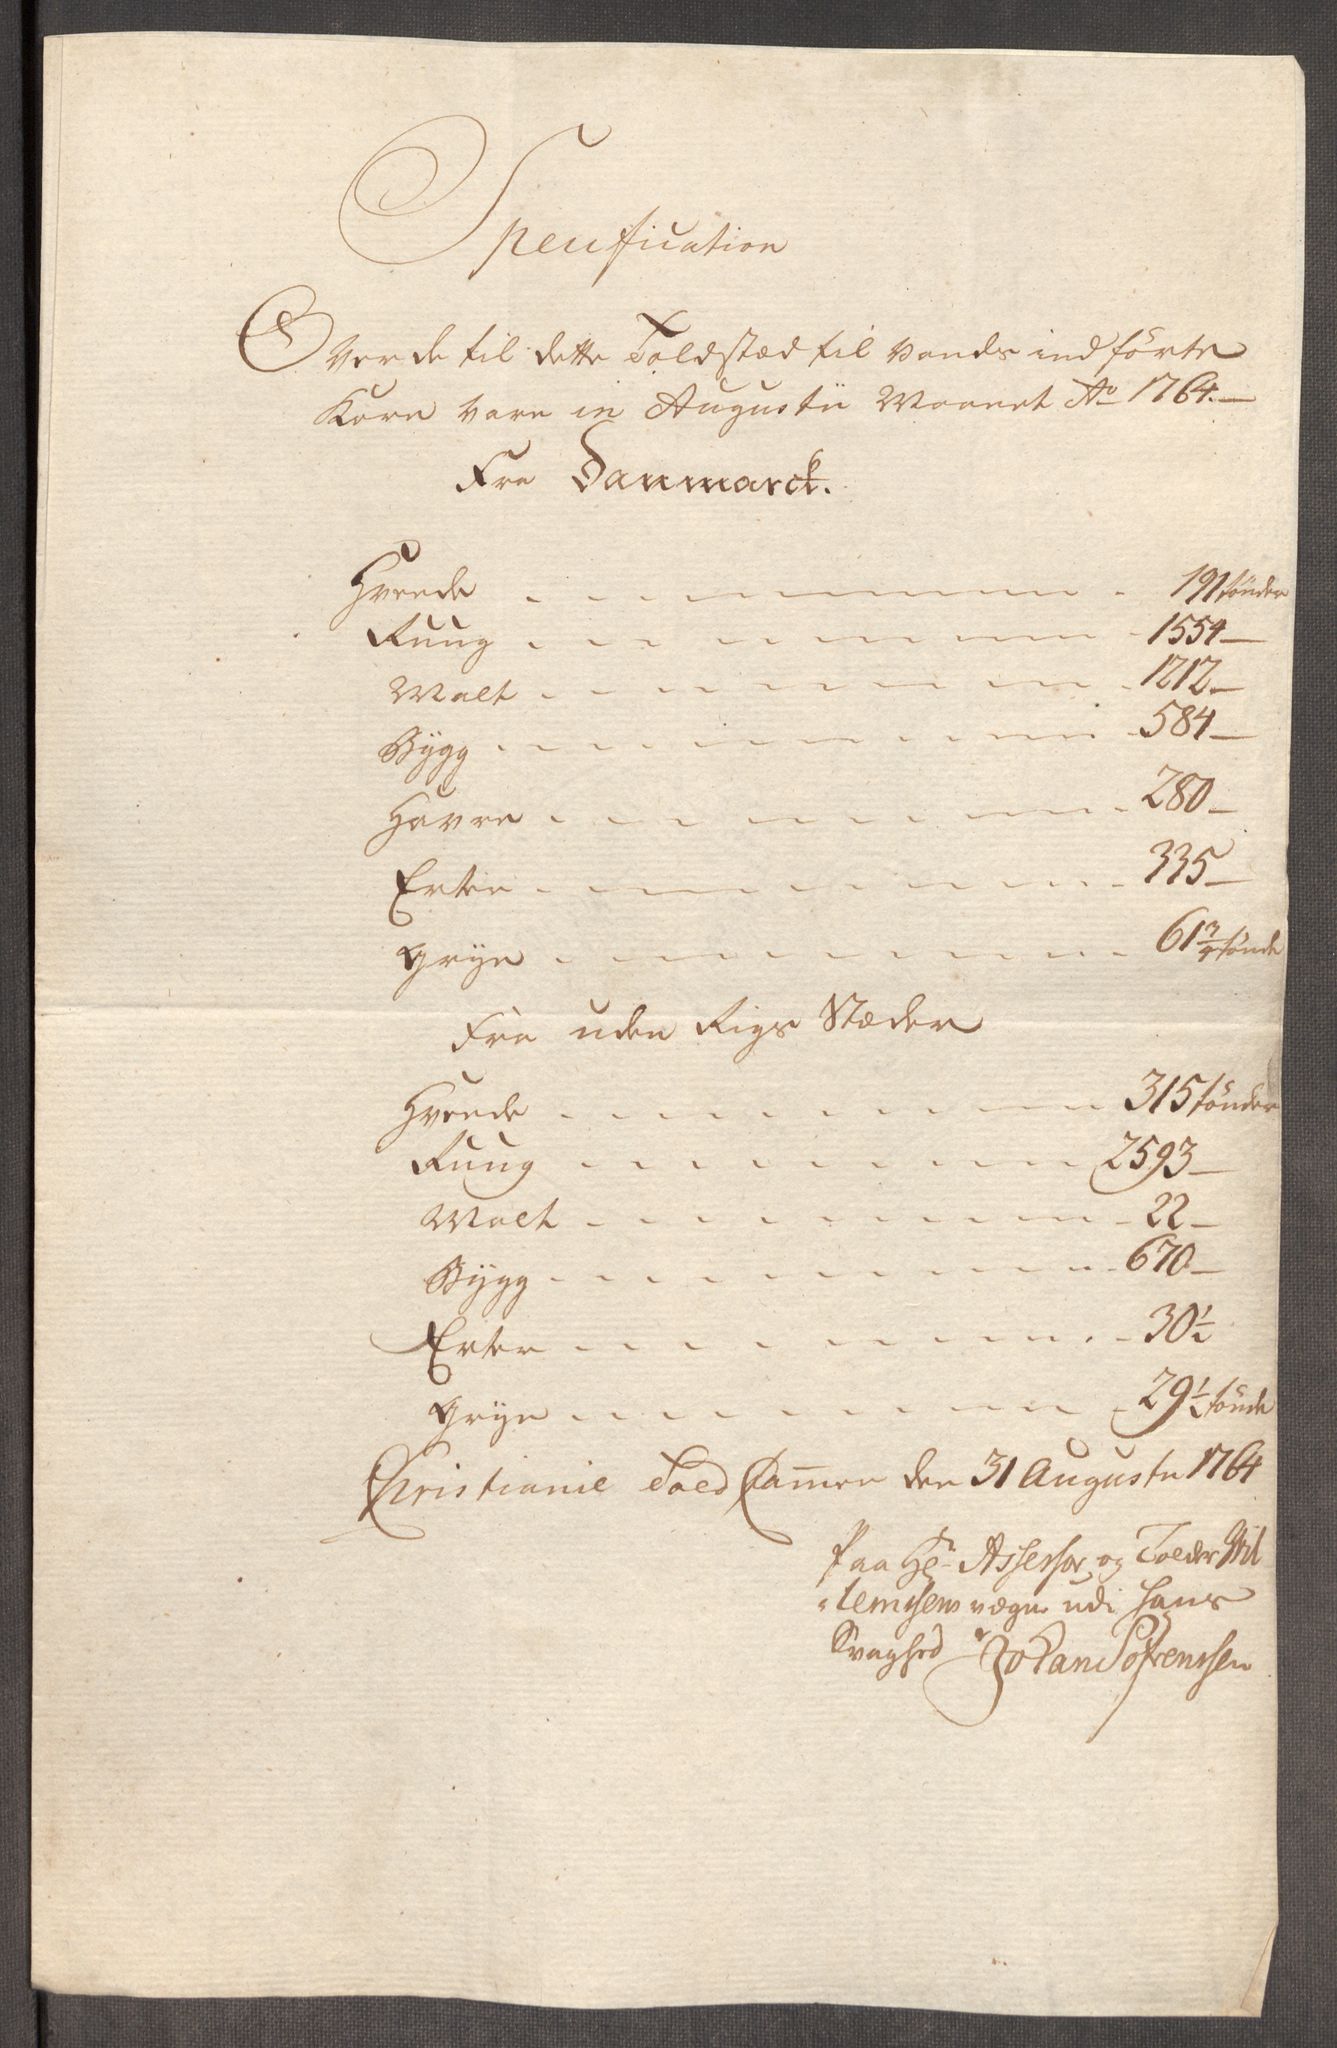 Specification
Over de til dette Toldstæd til Vands indførte
Korn Vare in Augustii Maanet Ao 1764.
Fra Danmarck.
Hvede 191 tønder
Ruug 1554
Malt 1212
Bÿgg 584
Havre 280
Erter 335
Grÿn 61 3/4 tønde
Fra uden Rigs Stæder
Hvede 315 tønder
Ruug 2593
Malt 22
Bÿgg 670
Erter 30 1/2
Grÿn 29 1/2 tønde
Christianie Told Cammer den 31 Augusti 1764
Paa Hr Assessor og Tolder Wil
lemsens vægne udi hans
Svaghed Johan Sørenssen